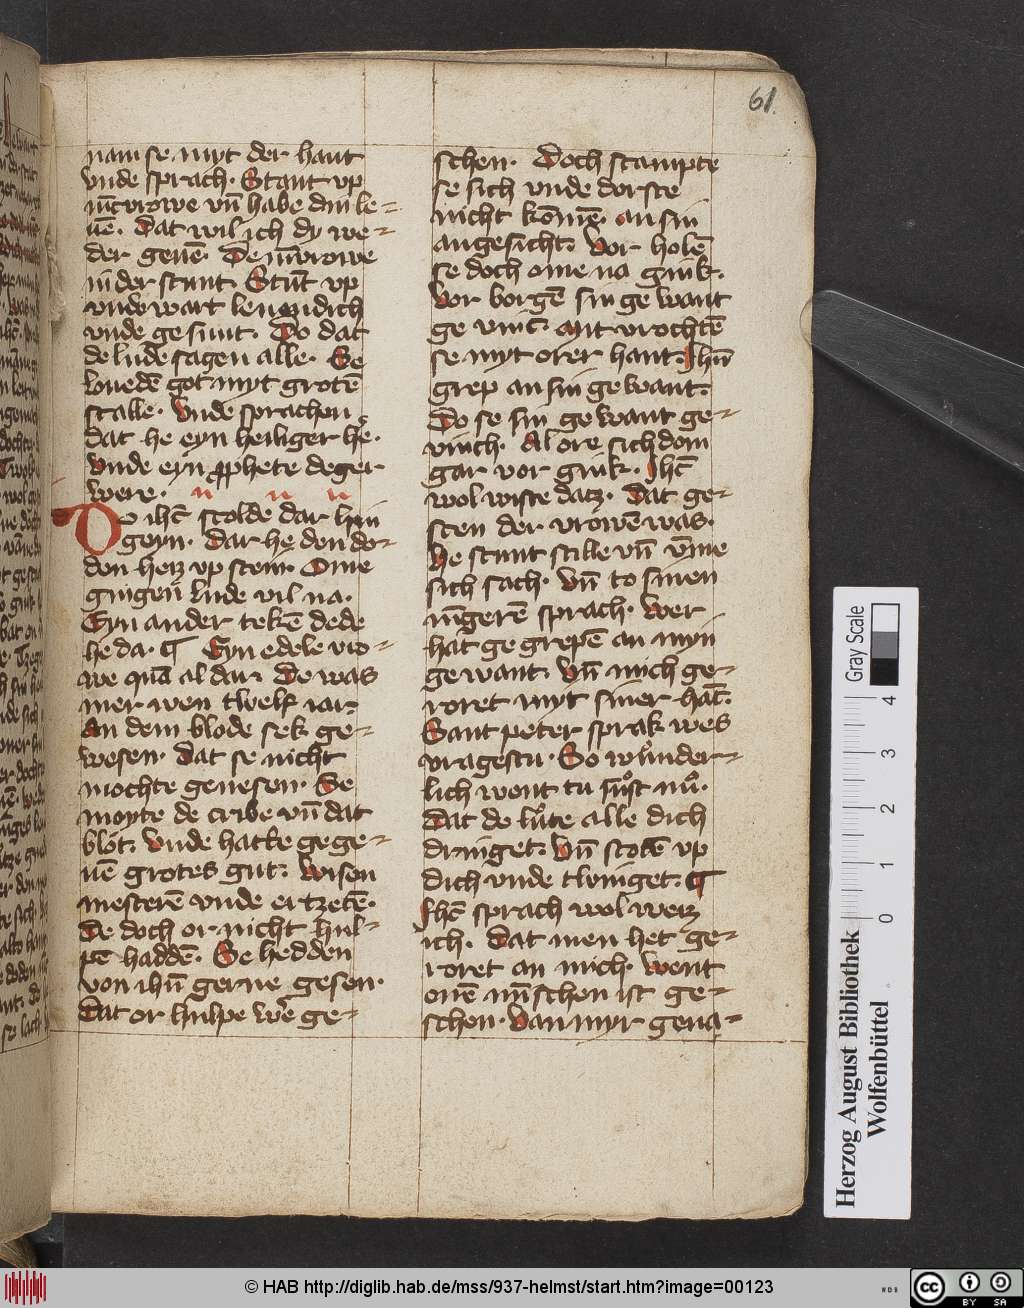 61.
nam se myt der hant
vnde sprach. Stant vp
iūcvrowe vn̄ habe din le=
uē. Dat wil ich dy we=
der geuē. De iūvrowe
in der stunt. Stūt vp
vnde wart lenendich
vnde gesunt. Do dat
de lude sagen alle. Se
louedē got myt grotē
scalle. Vnde sprachen
dat he eyn heiliger hē.
Vnde eyn prphete deger
were.
Do ihc̄ scolde dar hyn
geyn. Dar he den do=
den heiz vp stein. Ome
gingen lude vil na.
Eyn ander tekē dede
he da. ¶ Eyn edele vro=
we quā al dar. De was
mer wen twelf iar.
An dem blode sek ge=
wesen. Dat se nicht
mochte genesen. Se
moyte de cribe vn̄ dat
blot. Vnde hatte gege=
uē grotes gut. Wisen
mesterē vnde ertzetē.
De doch or nicht hul=
pē haddē. Se hedden
von ihū gerne gesen.
Dat or hulpe wer ge=
schen. Doch stampte
se sich vnde dorste
nicht komē. an sin
angesicht. Vor holē
se doch ome na gink.
Vor borgē sin gewant
ge vinc. Myt vrochtē
se myt orer hant. Ihū
grep an sin gewant.
Do se sin gewant ge=
vinch. Al ore sichdom
gar vor gink. Ihc̄
wol wiste datz. Dat ge=
sten der vrowē was.
He stunt stille vn̄ vme
sich sach. Vn̄ to sinen
iūgerē sprach. Wer
hat ge grepē an myn
gewant. Vn̄ mich ge=
roret myt siner hāt.
Sant peter sprak wes
vragestu. So wunder=
lich went tu sust nu.
Dat de lute alle dich
dringet. Vn̄ stotē vp
dich vnde twinget. ¶
Ihc̄ sprach wol weiz
ich. Dat men het ge=
roret an mich. Went
onē mīschen ist ge=
schen. Van myr gena=
Gray Scale
4
3
2
1
0
Herzog August Bibliothek
Wolfenbüttel
© HAB http://diglib.hab.de/mss/937-helmst/start.htm?image=00123
WDB
cc BY SA